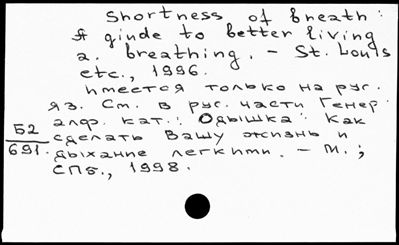 Shortness of breath:
A ginde to better living
a. breathing. – St. Louis
etc., 1996.
Имеется только на рус.
яз. См. в рус. части Генер.
алф. кат.: Одышка: Как
Б2
сделать Вашу жизнь и
691.
дыхание легкими. – М.;
СПб., 1998.